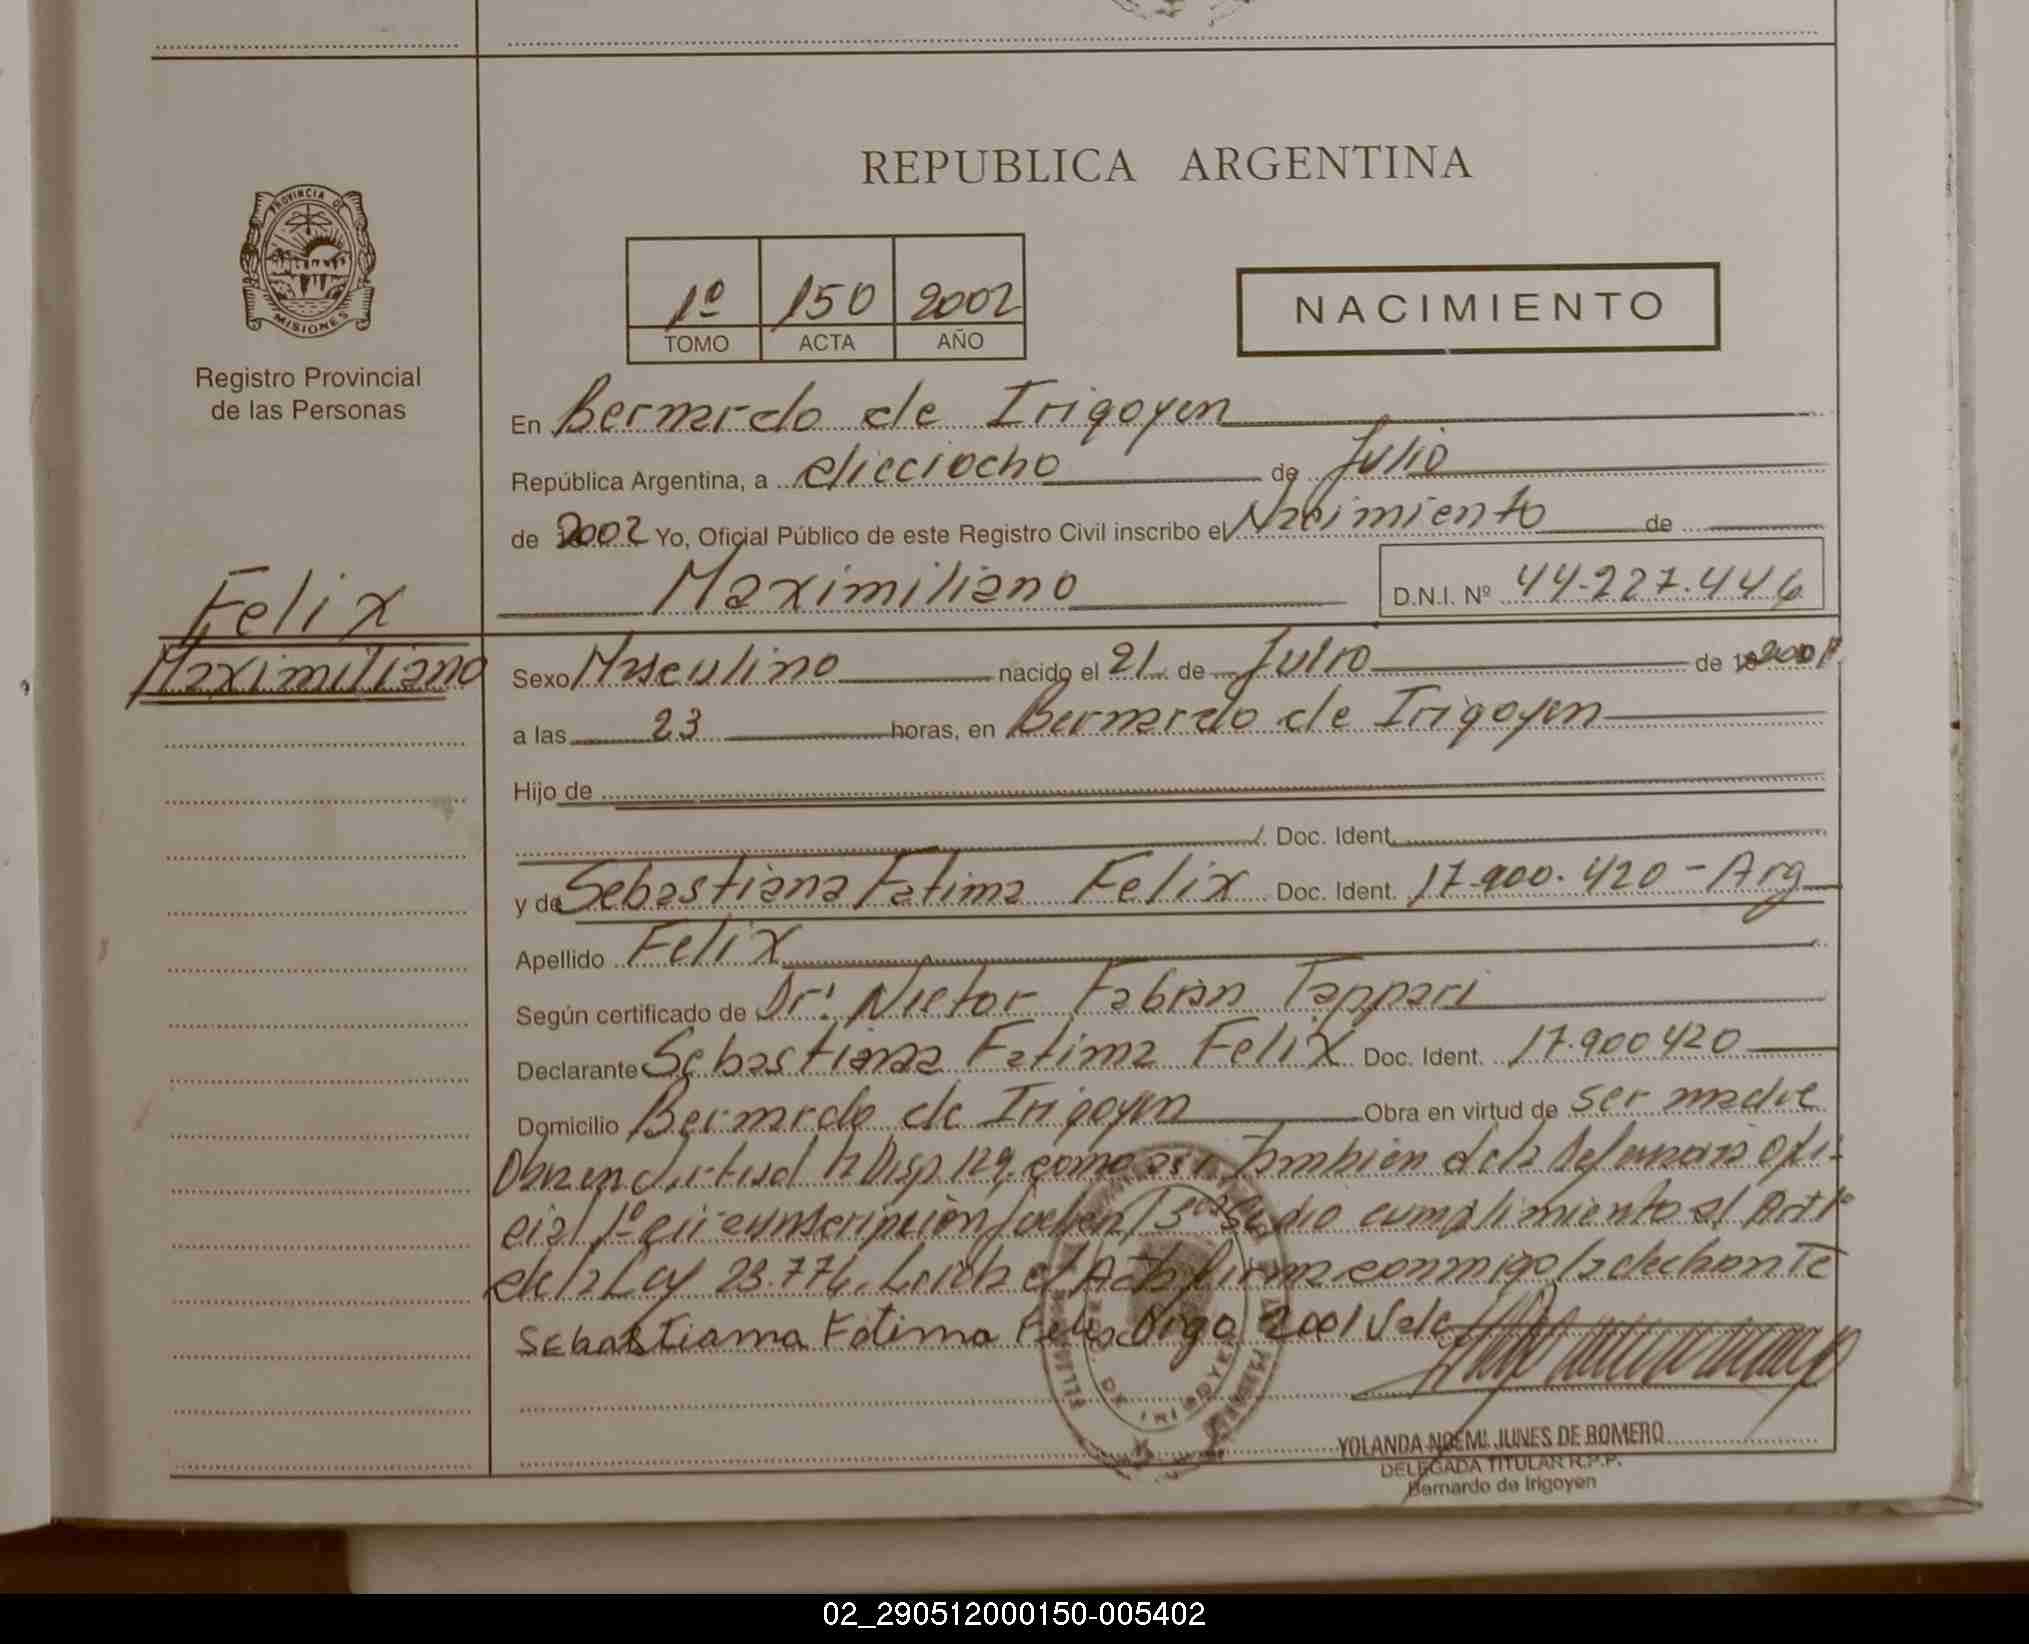 REPUBLICA ARGENTINA
PROVINCIA DE
MISIONES
Registro Provincial
de las Personas
1º 150 2002
TOMO ACTA AÑO
NACIMIENTO
En Bernardo de Irigoyen
República Argentina, a dieciocho de Julio
de 2002 Yo, Oficial Público de este Registro Civil inscribo el Nacimiento de
Maximiliano D.N.I. Nº 44.227.446
Felix
Maximiliano
Sexo Masculino nacido el 21 de Julio de 2001
a las 23 horas, en Bernardo de Irigoyen
Hijo de
Doc. Ident.
y de Sebastiana Fatima Felix Doc. Ident. 17.900.420 - Arg
Apellido Felix
Según certificado de Dr. Fabian Tappari
Declarante Sebastiana Fatima Felix Doc. Ident. 17.900420
Domicilio Bernardo de Irigoyen Obra en virtud de ser madre
Disp 129, como asi tambien de la Defensoria Ofi-
cial 1º circunscripción dio cumplimiento al Art 1º
de la Ley 23.776. Leida el Acta firma conmigo la
Sebastiana Fatima Felix Digo 2001 Vale
DE IRIGOYEN
YOLANDA NOEMI JUNES DE ROMERO
DELEGADA TITULAR R.P.P.
Bernardo de Irigoyen
02_290512000150-005402